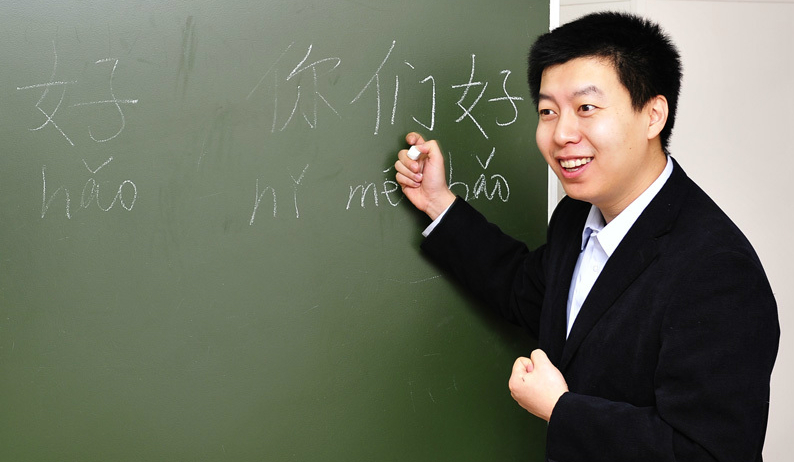 好 你们好
hǎo nǐ mē hǎo